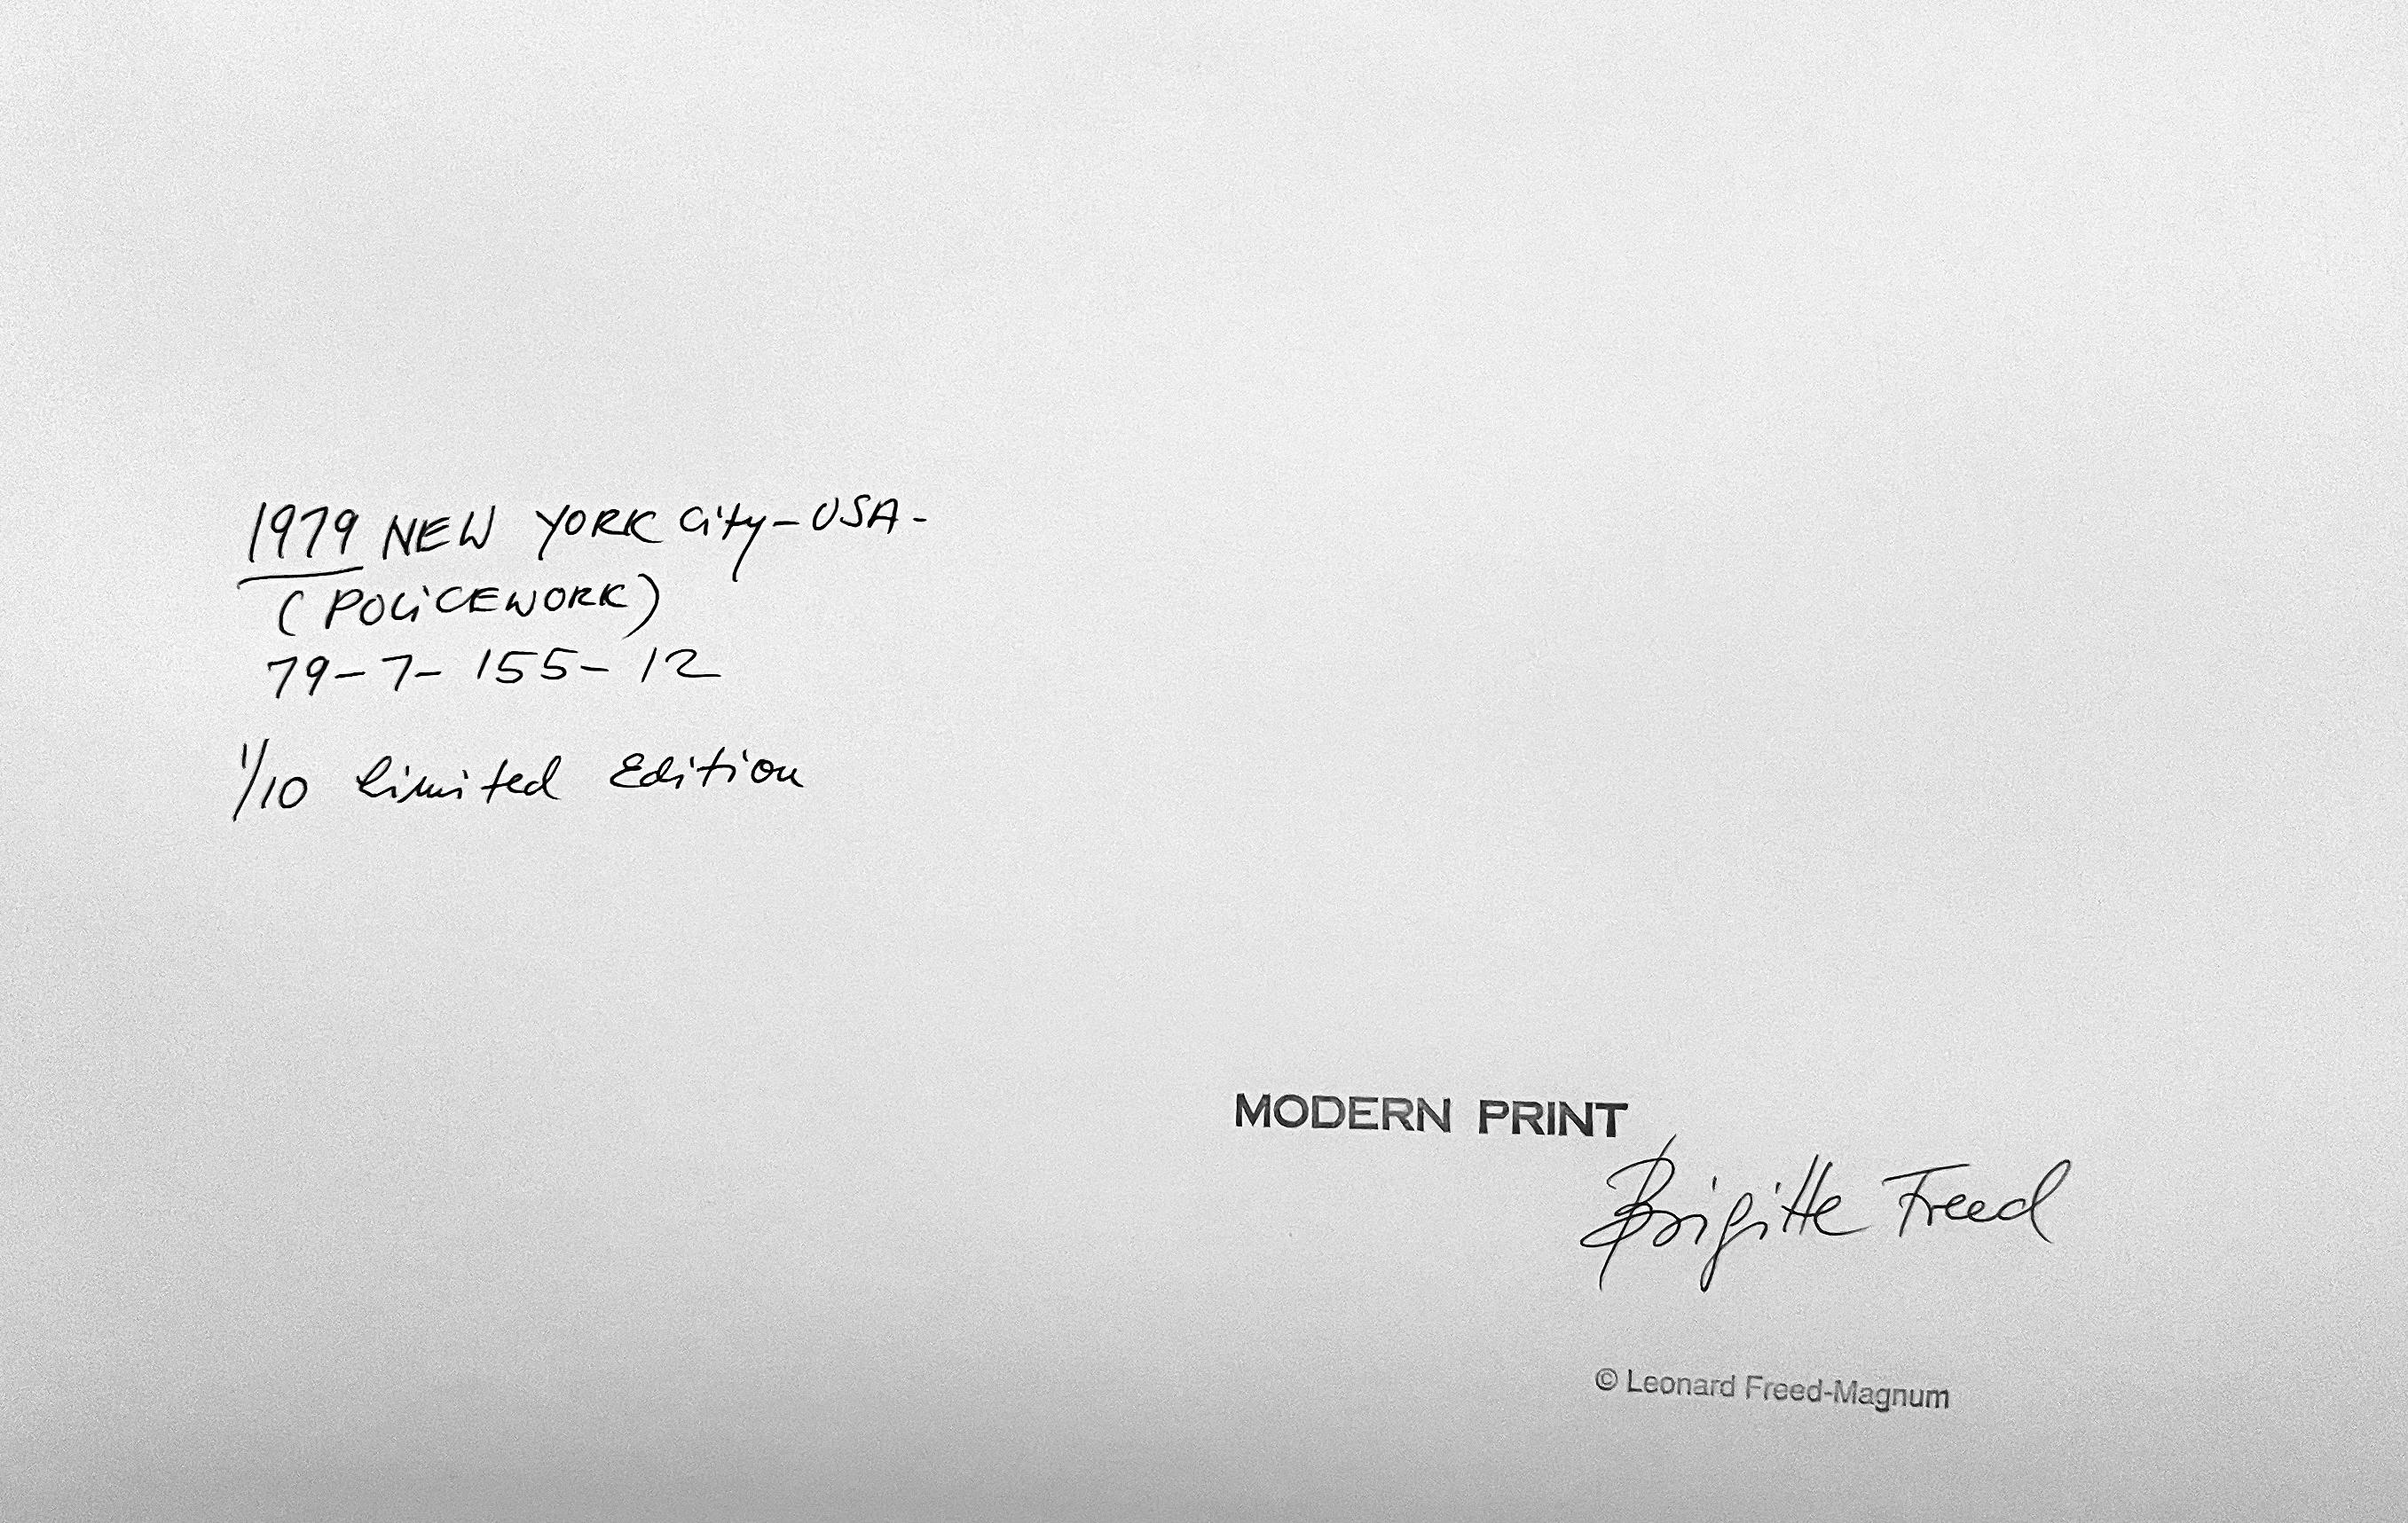 1979 NEW YORK City - USA -
(POLiCEWORK)
79-7-155-12
1/10 limited Edition
MODERN PRINT
Brigitte Freed
© Leonard Freed-Magnum